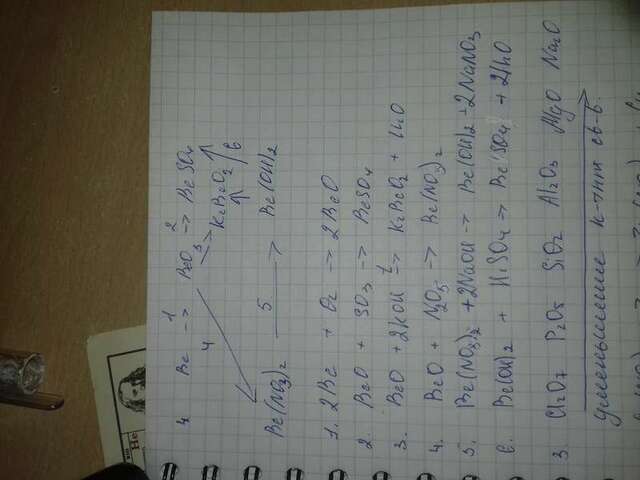 He
4. Be 1→ BeO 2→ BeSO4
4 3 K2BeO2 6
Be(NO3)2 5→ Be(OH)2
1. 2Be + O2 → 2BeO
2. BeO + SO3 → BeSO4
3. BeO + 2KOH t→ K2BeO2 + H2O
4. BeO + N2O5 → Be(NO3)2
5. Be(NO3)2 + 2NaOH → Be(OH)2 + 2NaNO3
6. Be(OH)2 + H2SO4 → BeSO4 + 2H2O
3. Cl2O7 P2O5 SiO2 Al2O3 MgO Na2O
уменьшение к-тн св-в.